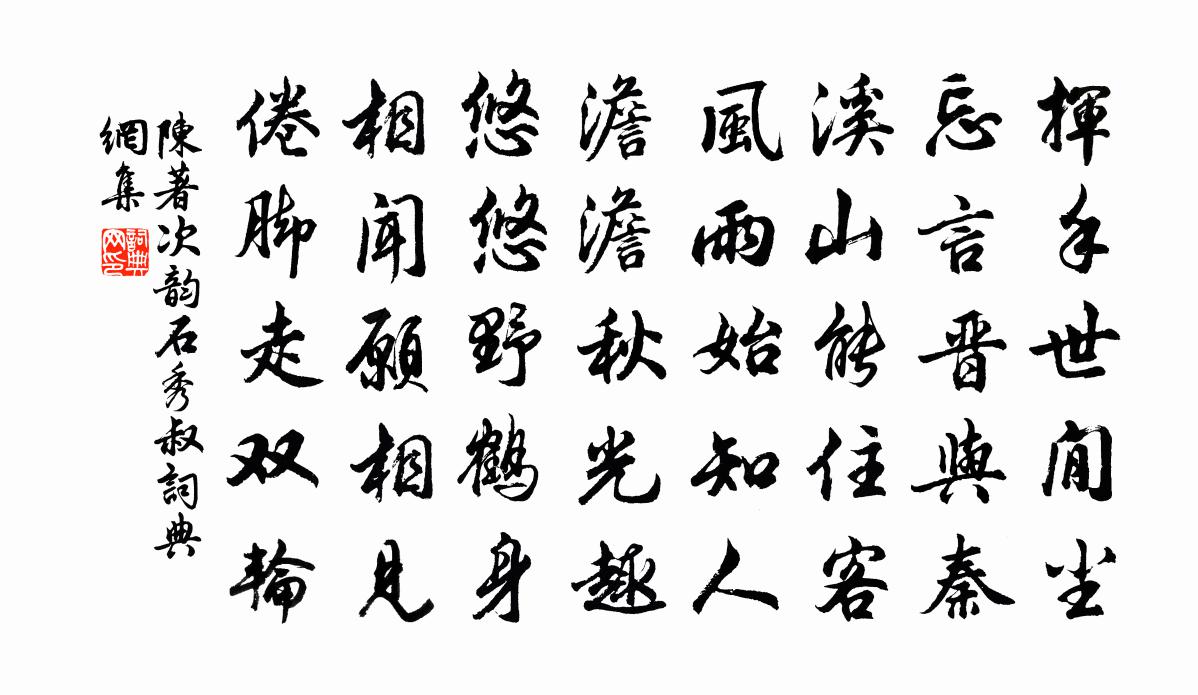 揮手世間尘
忘言晋與秦
溪山能住客
風雨始知人
澹澹秋光趣
悠悠野鶴身
相聞願相見
倦脚走双輪
陳著次韵石秀叔詞典
網集
詞典
网印